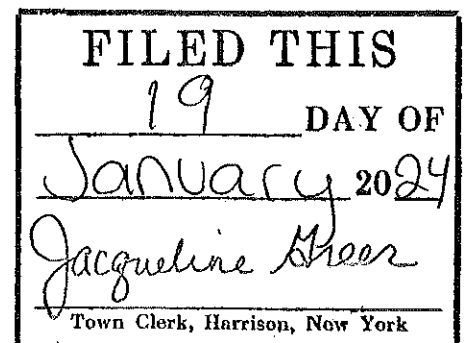 FILED THIS
19 DAY OF
January 2024
Jacqueline Greer
Town Clerk, Harrison, New York